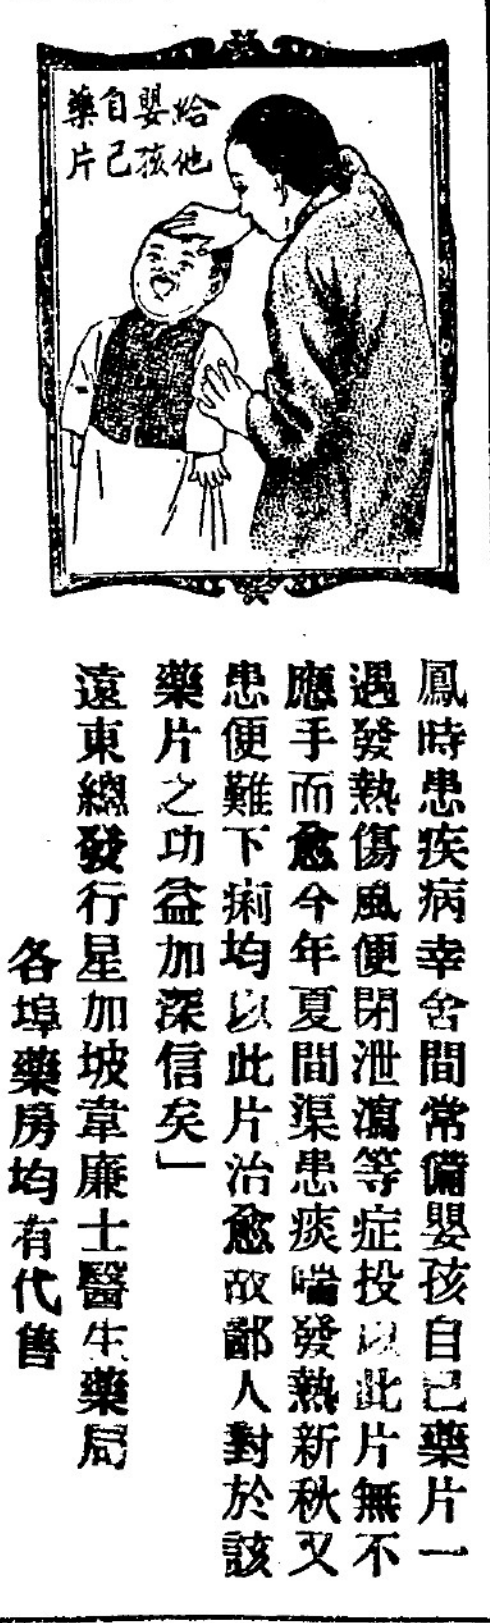 給他
嬰孩
自己
藥片
鳳時患疾病幸舍間常備嬰孩自己藥片一
遇發熱傷風便閉泄瀉等症投以此片無不
應手而愈今年夏間渠患痰喘發熱新秋又
患便難下痢均以此片治愈故鄙人對於該
藥片之功益加深信矣」
遠東總發行星加坡韋廉士醫生藥局
各埠藥房均有代售